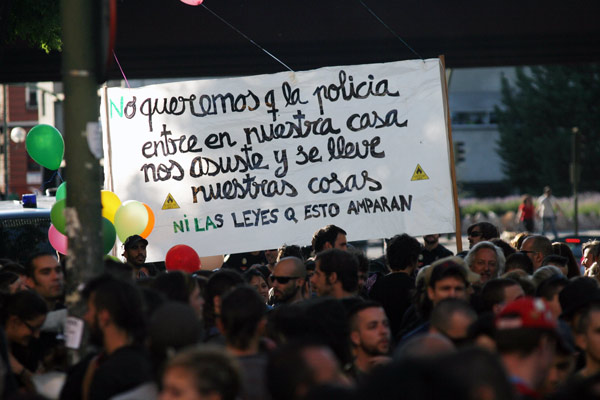 No queremos q la policia
entre en nuestra casa
nos asuste y se lleve
nuestras cosas
NI LAS LEYES Q ESTO AMPARAN